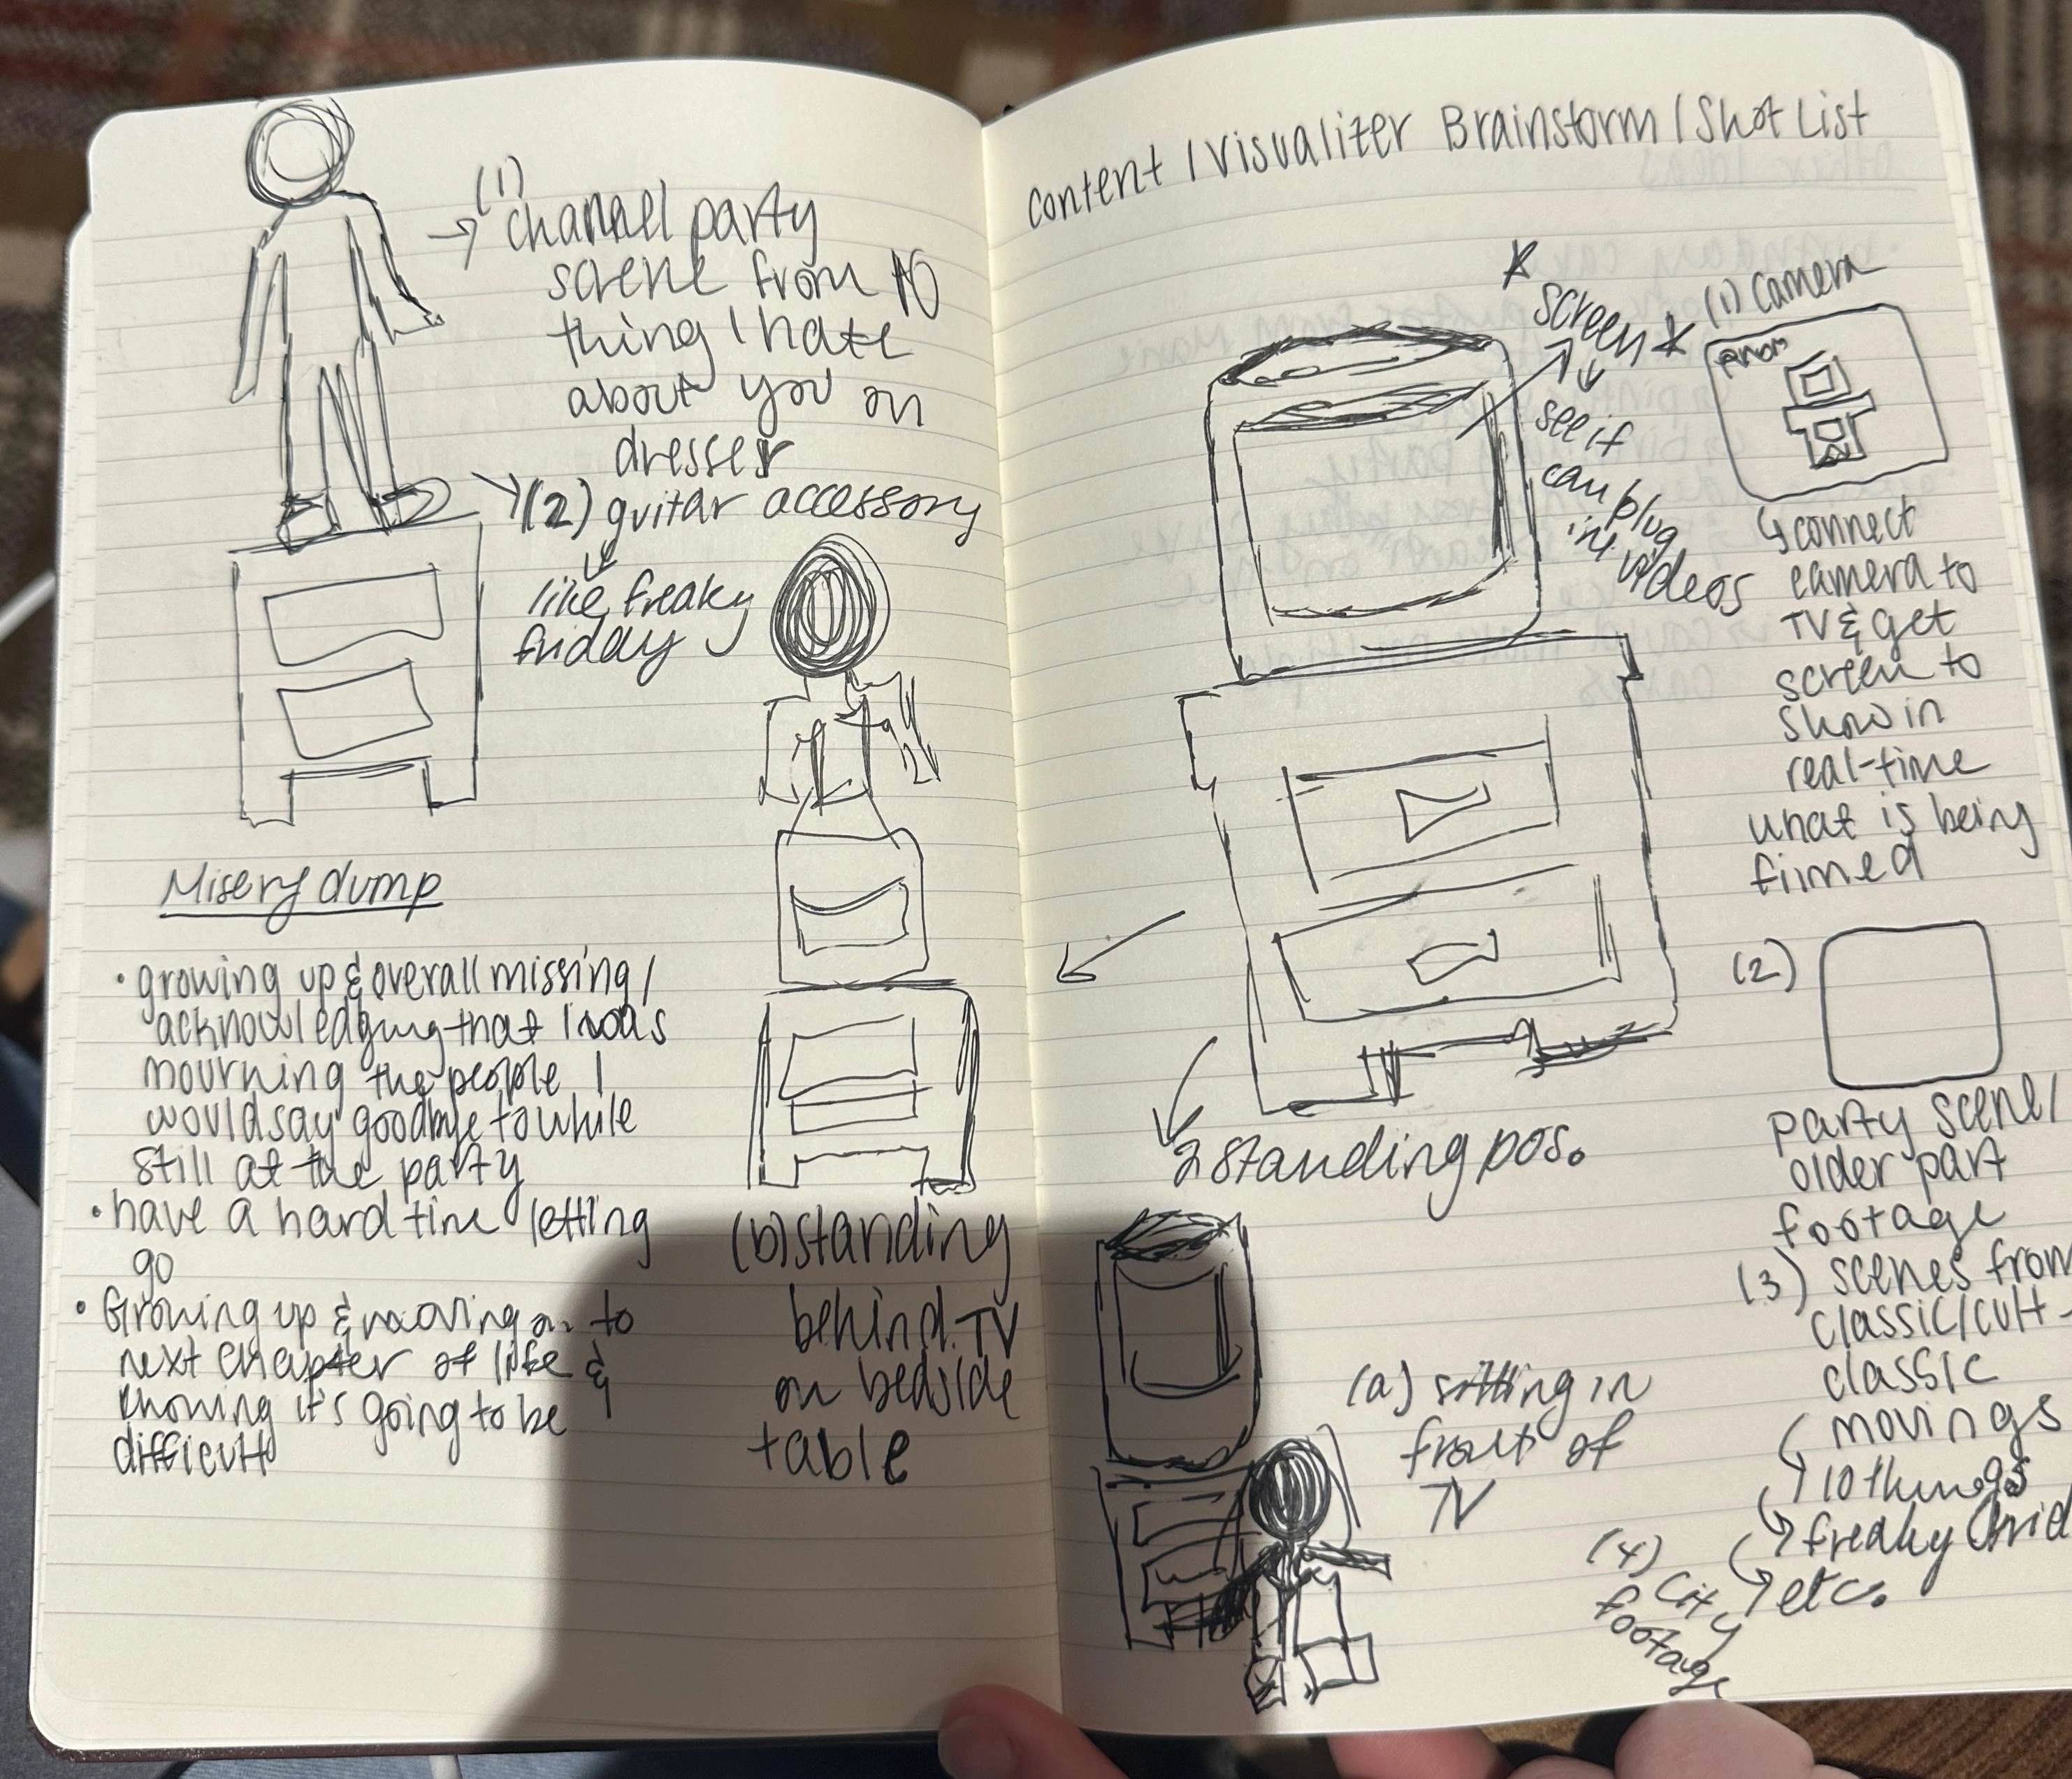 (1)
→ channel party
scene from 10
thing I hate
about you on
dresser
(2) guitar accessory
like freaky
friday
Misery dump
• growing up & overall missing/
acknowledging that I was
mourning the people I
would say goodbye to while
still at the party
• have a hard time letting
go
• Growing up & moving on to
next chapter of life &
knowing it's going to be
difficult
(b) standing
behind TV
on bedside
table
Content / Visualizer Brainstorm / Shot List
* screen *
see if
can plug
in videos
(1) camera
↳ connect
camera to
TV & get
screen to
show in
real-time
what is being
filmed
(2)
party scene/
older part
footage
(3) scenes from
classic/cult-
classic
movings
10 things
freaky frid
etc.
(4) city
footage
2 standing pos.
(a) sitting in
front of
TV